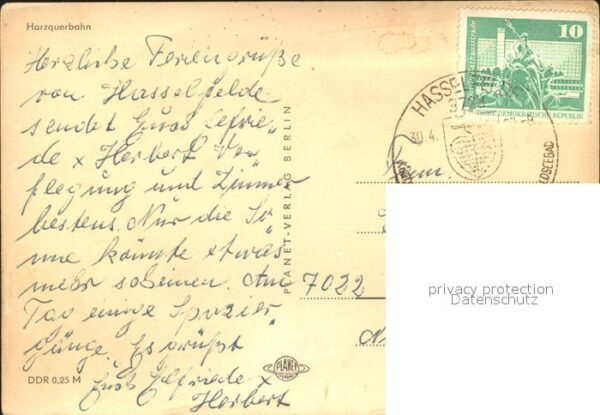 Harzquerbahn
Herzliche Feriengrüße
von Hasselfelde
sendet Euch Elfrie-
de x Herbert Ver-
pflegung und Zimmer
bestens. Nur die So-
nne könnte etwas
mehr scheinen. Am
Tag einige Spazier-
gänge. Es grüßt
Euch Elfriede x
Herbert
DDR 0,25 M
PLANET-VERLAG BERLIN
PLANET
10
DEMOKRATISCHE REPUBLIK
HASSEL
30.4.
Fam.
7022
privacy protection
Datenschutz